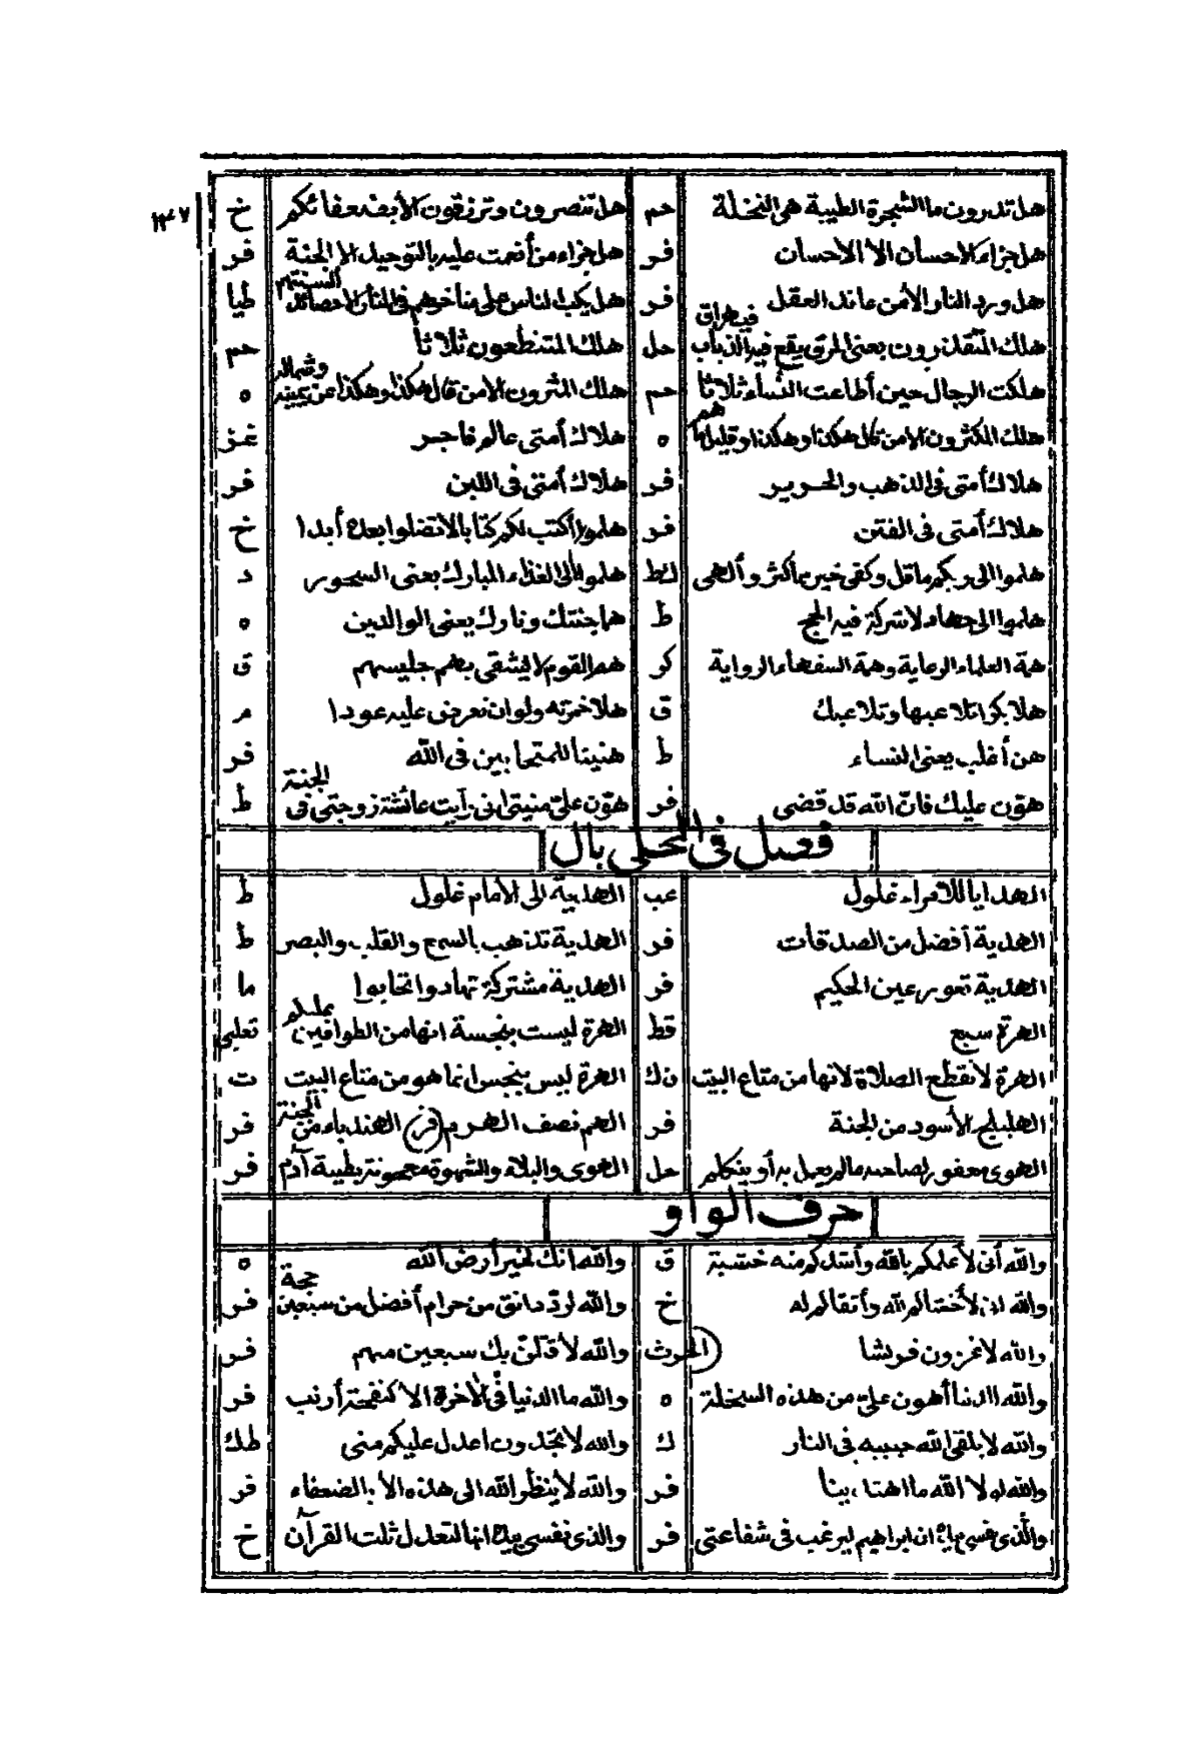 ١٤٧
هل تدرون ما الشجرة الطيبة هى النخلة حم هل تنصرون وترزقون الا بضعفائكم خ
هل جزاء الاحسان الا الاحسان فر هل جزاء من أنعمت عليه بالتوحيد الا الجنة فر
هل ورد النار الا من عاند العقل فر هل يكب الناس على مناخرهم فى النار الا حصائد ألسنتهم طيا
هلك المتقذرون يعنى المرق يقع فيه الذباب فيهراق حل هلك المتنطعون ثلاثا حم
هلكت الرجال حين أطاعت النساء ثلاثا حم هلك المثرون الا من قال هكذا وهكذا عن يمينه وشماله ه
هلك المكثرون الا من قال هكذا وهكذا وقليل ما هم ه هلاك أمتى عالم فاجر
هلاك أمتى فى الذهب والحرير فر هلاك أمتى فى اللبن فر
هلاك أمتى فى الفتن فر هلموا أكتب لكم كتابا لا تضلوا بعده أبدا خ
هلموا الى ربكم ما قل وكفى خير مما كثر وألهى هلموا الى الغداء المبارك يعنى السحور د
هلموا الى جهاد لا شركة فيه الحج ط هما جنتك ونارك يعنى الوالدين ه
همة العلماء الرعاية وهمة السفهاء الرواية كر هم القوم لا يشقى بهم جليسهم ق
هلا بكرا تلاعبها وتلاعبك ق هلا خمرته ولو ان تعرض عليه عودا م
هن أغلب يعنى النساء ط هنيئا للمتحابين فى الله فر
هون عليك فان الله قد قضى فر هون على منيتى انى رأيت عائشة زوجتى فى الجنة ط
فصل فى المحلى بال
الهدايا للامراء غلول عب الهدية الى الأمام غلول ط
الهدية أفضل من الصدقات فر الهدية تذهب بالسمع والقلب والبصر ط
الهدية تعور عين الحكيم فر الهدية مشتركة تهادوا تحابوا ما
الهرة سبع قط الهرة ليست بنجسة انها من الطوافين عليكم
الهرة لا تقطع الصلاة لانها من متاع البيت الهرة ليس بنجس انما هو من متاع البيت ت
الهليلج الأسود من الجنة فر الهم نصف الهرم (فر) الهندباء من الجنة فر
الهوى مغفور لصاحبه مالم يعمل به أو يتكلم حل الهوى والبلاء والشهوة معجونة بطينة آدم فر
حرف الواو
والله أنى لأعلمكم بالله وأشدكم منه خشية ق والله انك لخير أرض الله ه
والله انى لأخشاكم لله وأتقاكم له خ والله لرد دانق من حرام أفضل من سبعين حجة فر
والله لاغزون قريشا والله لأقتلن بك سبعين منهم فر
والله الدنيا أهون على من هذه السخلة ه والله ما الدنيا فى الأخرة الا كنفجة أرنب فر
والله لا يلقى الله حبيبه فى النار ك والله لا تجدون اعدل عليكم منى طك
والله لولا الله ما اهتدينا فر والله لا ينظر الله الى هذه الا بالضعفاء فر
والذى نفسى بيده ان ابراهيم ليرغب فى شفاعتى فر والذى نفسى بيده انها لتعدل ثلث القرآن خ